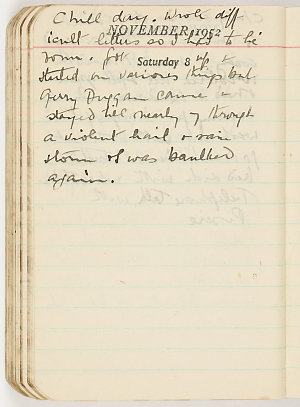 Chill day. Wrote diff
NOVEMBER 1952
icult letters so I hope to be
Saturday 8
done. Got up &
started on various things but
Gerry Duggan came &
stayed till nearly 7 through
a violent hail & rain
storm & I was baulked
again.